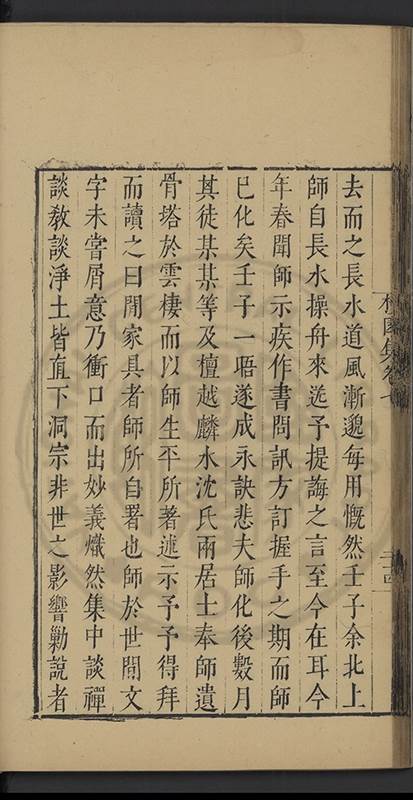 去而之長水道風漸邈每用慨然壬子余北上
師自長水操舟來送予提誨之言至今在耳今
年春聞師示疾作書問訊方訂握手之期而師
已化矣壬子一晤遂成永訣悲夫師化後數月
其徒某某等及檀越麟水沈氏兩居士奉師遺
骨塔於雲棲而以師生平所著述示予予得拜
而讀之曰閒家具者師所自署也師於世間文
字未甞屑意乃衝口而出妙義熾然集中談禪
談教談淨土皆直下洞宗非世之影響勦說者